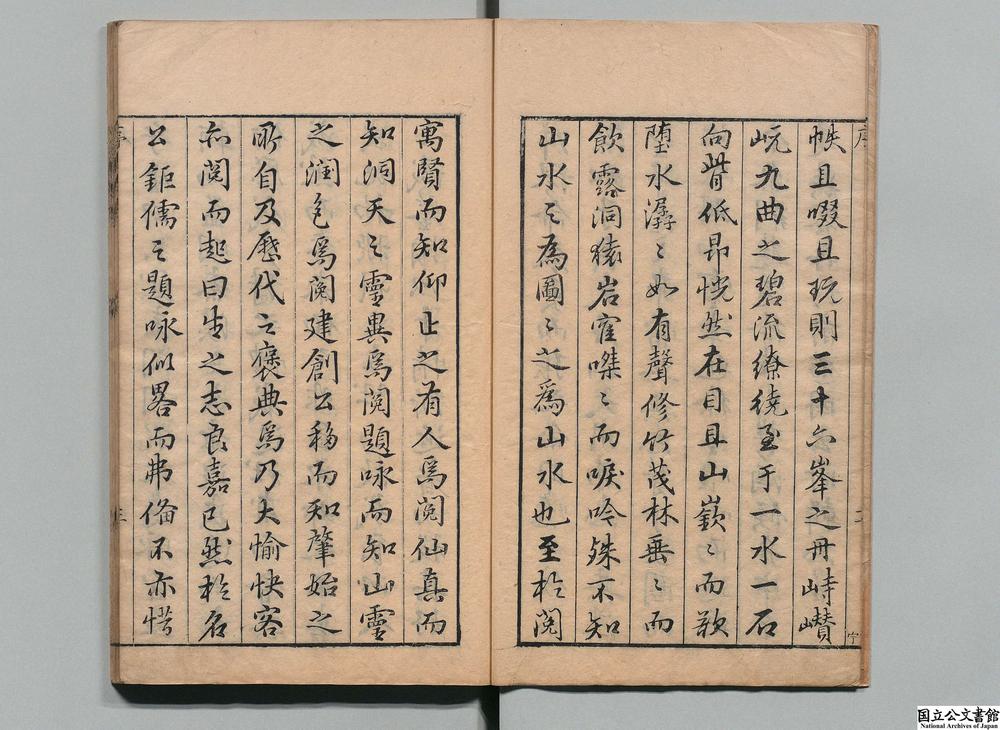 序
帙且啜且玩則三十六峯之丹崎巑
岏九曲之碧流繚繞至于一水一石
向背低昻恍然在目且山嶔〻而欲
墮水潺〻如有聲修竹茂林垂〻而
飲露洞猿岩寉嗥〻而唳吟殊不知
山水之為圖〻之爲山水也至於閱
寓賢而知仰止之有人焉閱仙真而
知洞天之靈異焉閱題咏而知山靈
之润色焉閱建創公移而知肇始之
所自及歷代之褒典焉乃大愉快客
亦閱而起曰生之志良嘉已然於名
公鉅儒之題咏似畧而弗俻不亦惜
序
三
国立公文書館
National Archives of Japan